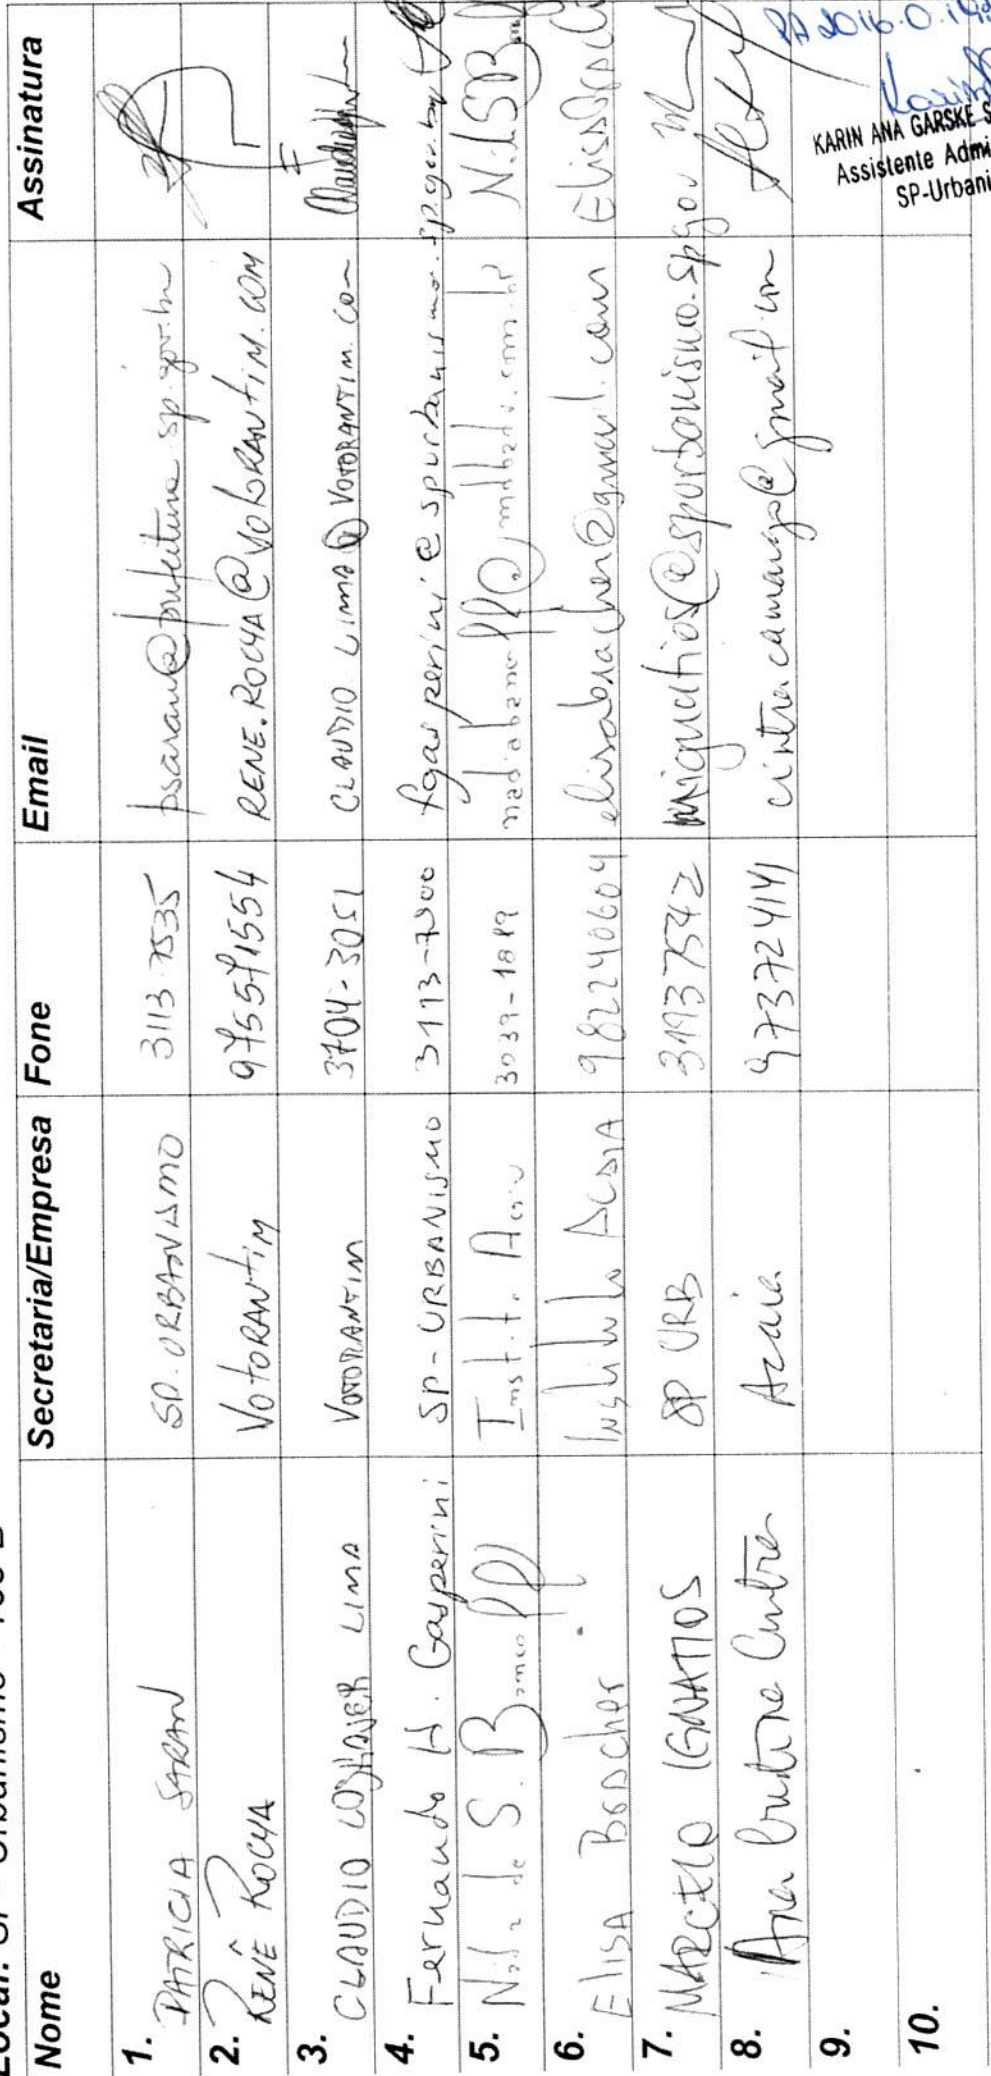 Nome Secretaria/Empresa Fone Email Assinatura
1. PATRICIA SARAN SP. URBANISMO 3113.7535 psaran@prefeitura.sp.gov.br
2. RENÊ ROCHA VOTORANTIM 975571554 RENE.ROCHA@VOTORANTIM.COM
3. CLAUDIO LIMA VOTORANTIM 3704-3051 CLAUDIO LIMA@VOTORANTIM.COM
4. Fernando H. Gasperini SP-URBANISMO 3113-7500 fgasperini@spurbanismo.sp.gov.br
5. Nadia de S. B 3039-1819
6. ELISA BRACHER INSTITUTO ACAIA 982240604 elisabracher@gmail.com
7. MARCELO IGNATIOS SP URB 31137542 mignatios@spurbanismo.spgov
8. Ana Cristina Cintra Acaia 973724141 cintracamargo@gmail.com
9.
10.
PA 2016.0.
KARIN ANA GARSKE
Assistente
SP-Urbani